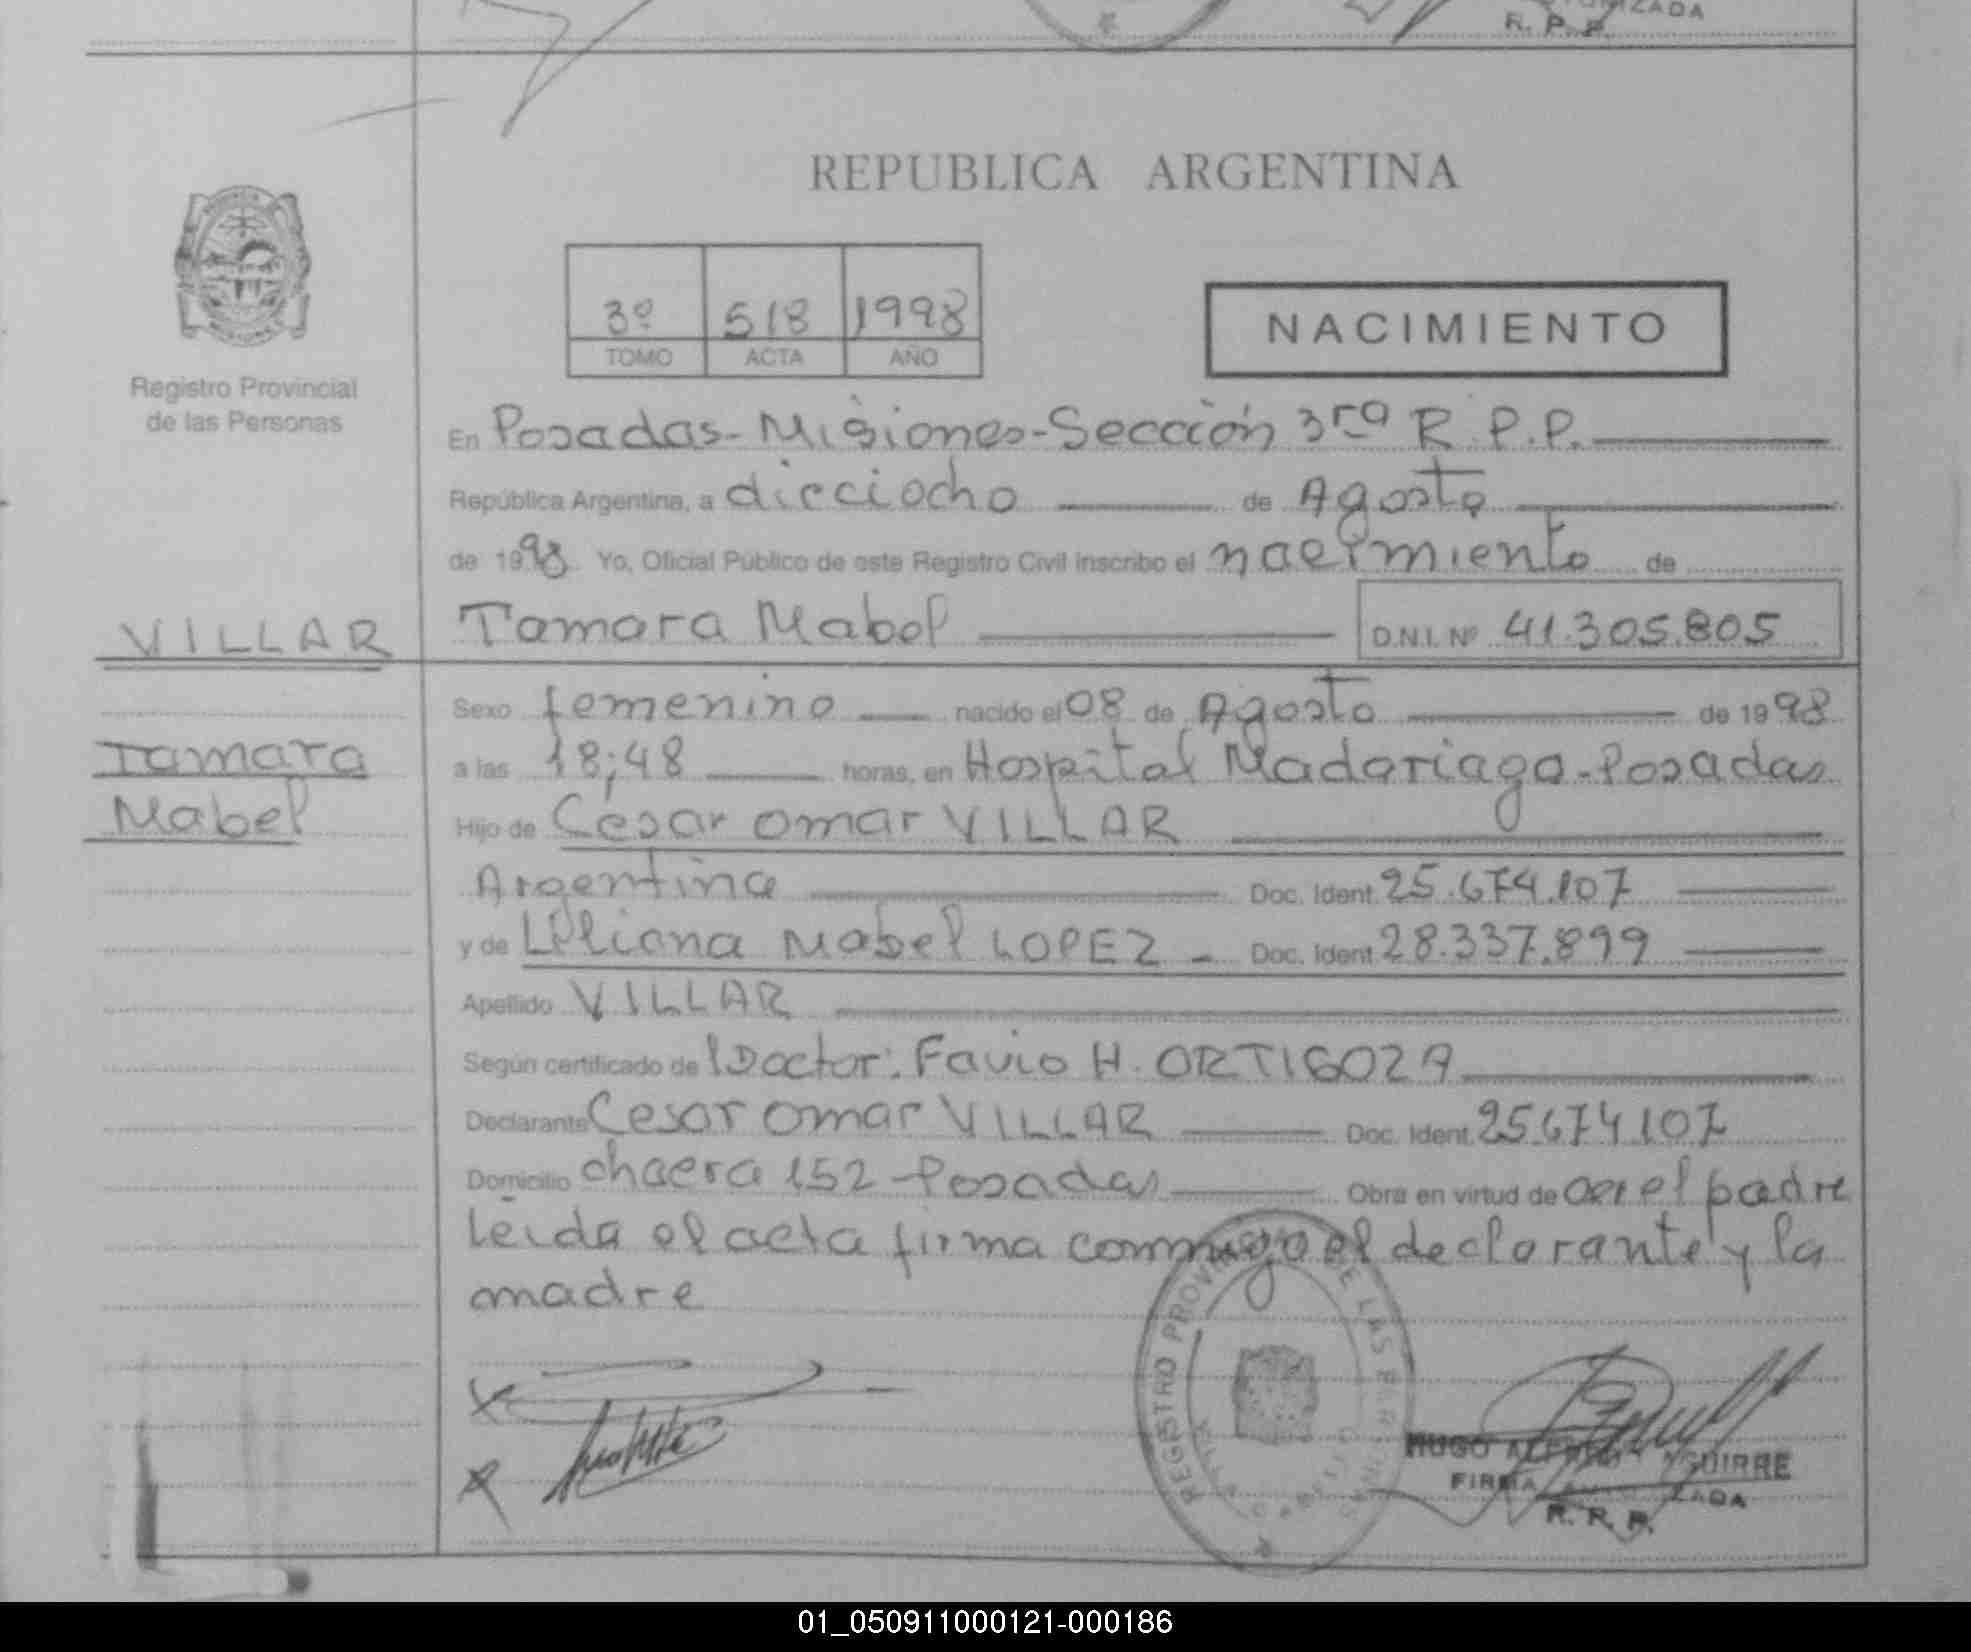 R. P. P.
REPUBLICA ARGENTINA
3º 518 1998
TOMO ACTA AÑO
NACIMIENTO
Registro Provincial
de las Personas
En Posadas-Misiones-Sección 3ra R.P.P.
República Argentina, a dieciocho de Agosto
de 1998 Yo, Oficial Público de este Registro Civil inscribo el nacimiento de
VILLAR
Tamara Mabel D.N.I. Nº 41.305.805
Sexo femenino nacido el 08 de Agosto de 1998
Tamara
a las 18;48 horas, en Hospital Madariaga-Posadas
Mabel
Hijo de César Omar VILLAR
Argentina Doc. Ident. 25.674.107
y de Liliana Mabel LOPEZ - Doc. Ident. 28.337.899
Apellido VILLAR
Según certificado de Doctor: Favio H. ORTIGOZA
Declarante Cesar Omar VILLAR Doc. Ident. 25674107
Domicilio chacra 152-Posadas Obra en virtud de ser el padre
Leida el acta firma conmigo el declarante y la
madre
REGISTRO PROVINCIAL DE LAS PERSONAS
HUGO ALFREDO AGUIRRE
FIRMA AUTORIZADA
R. P. P.
01_050911000121-000186